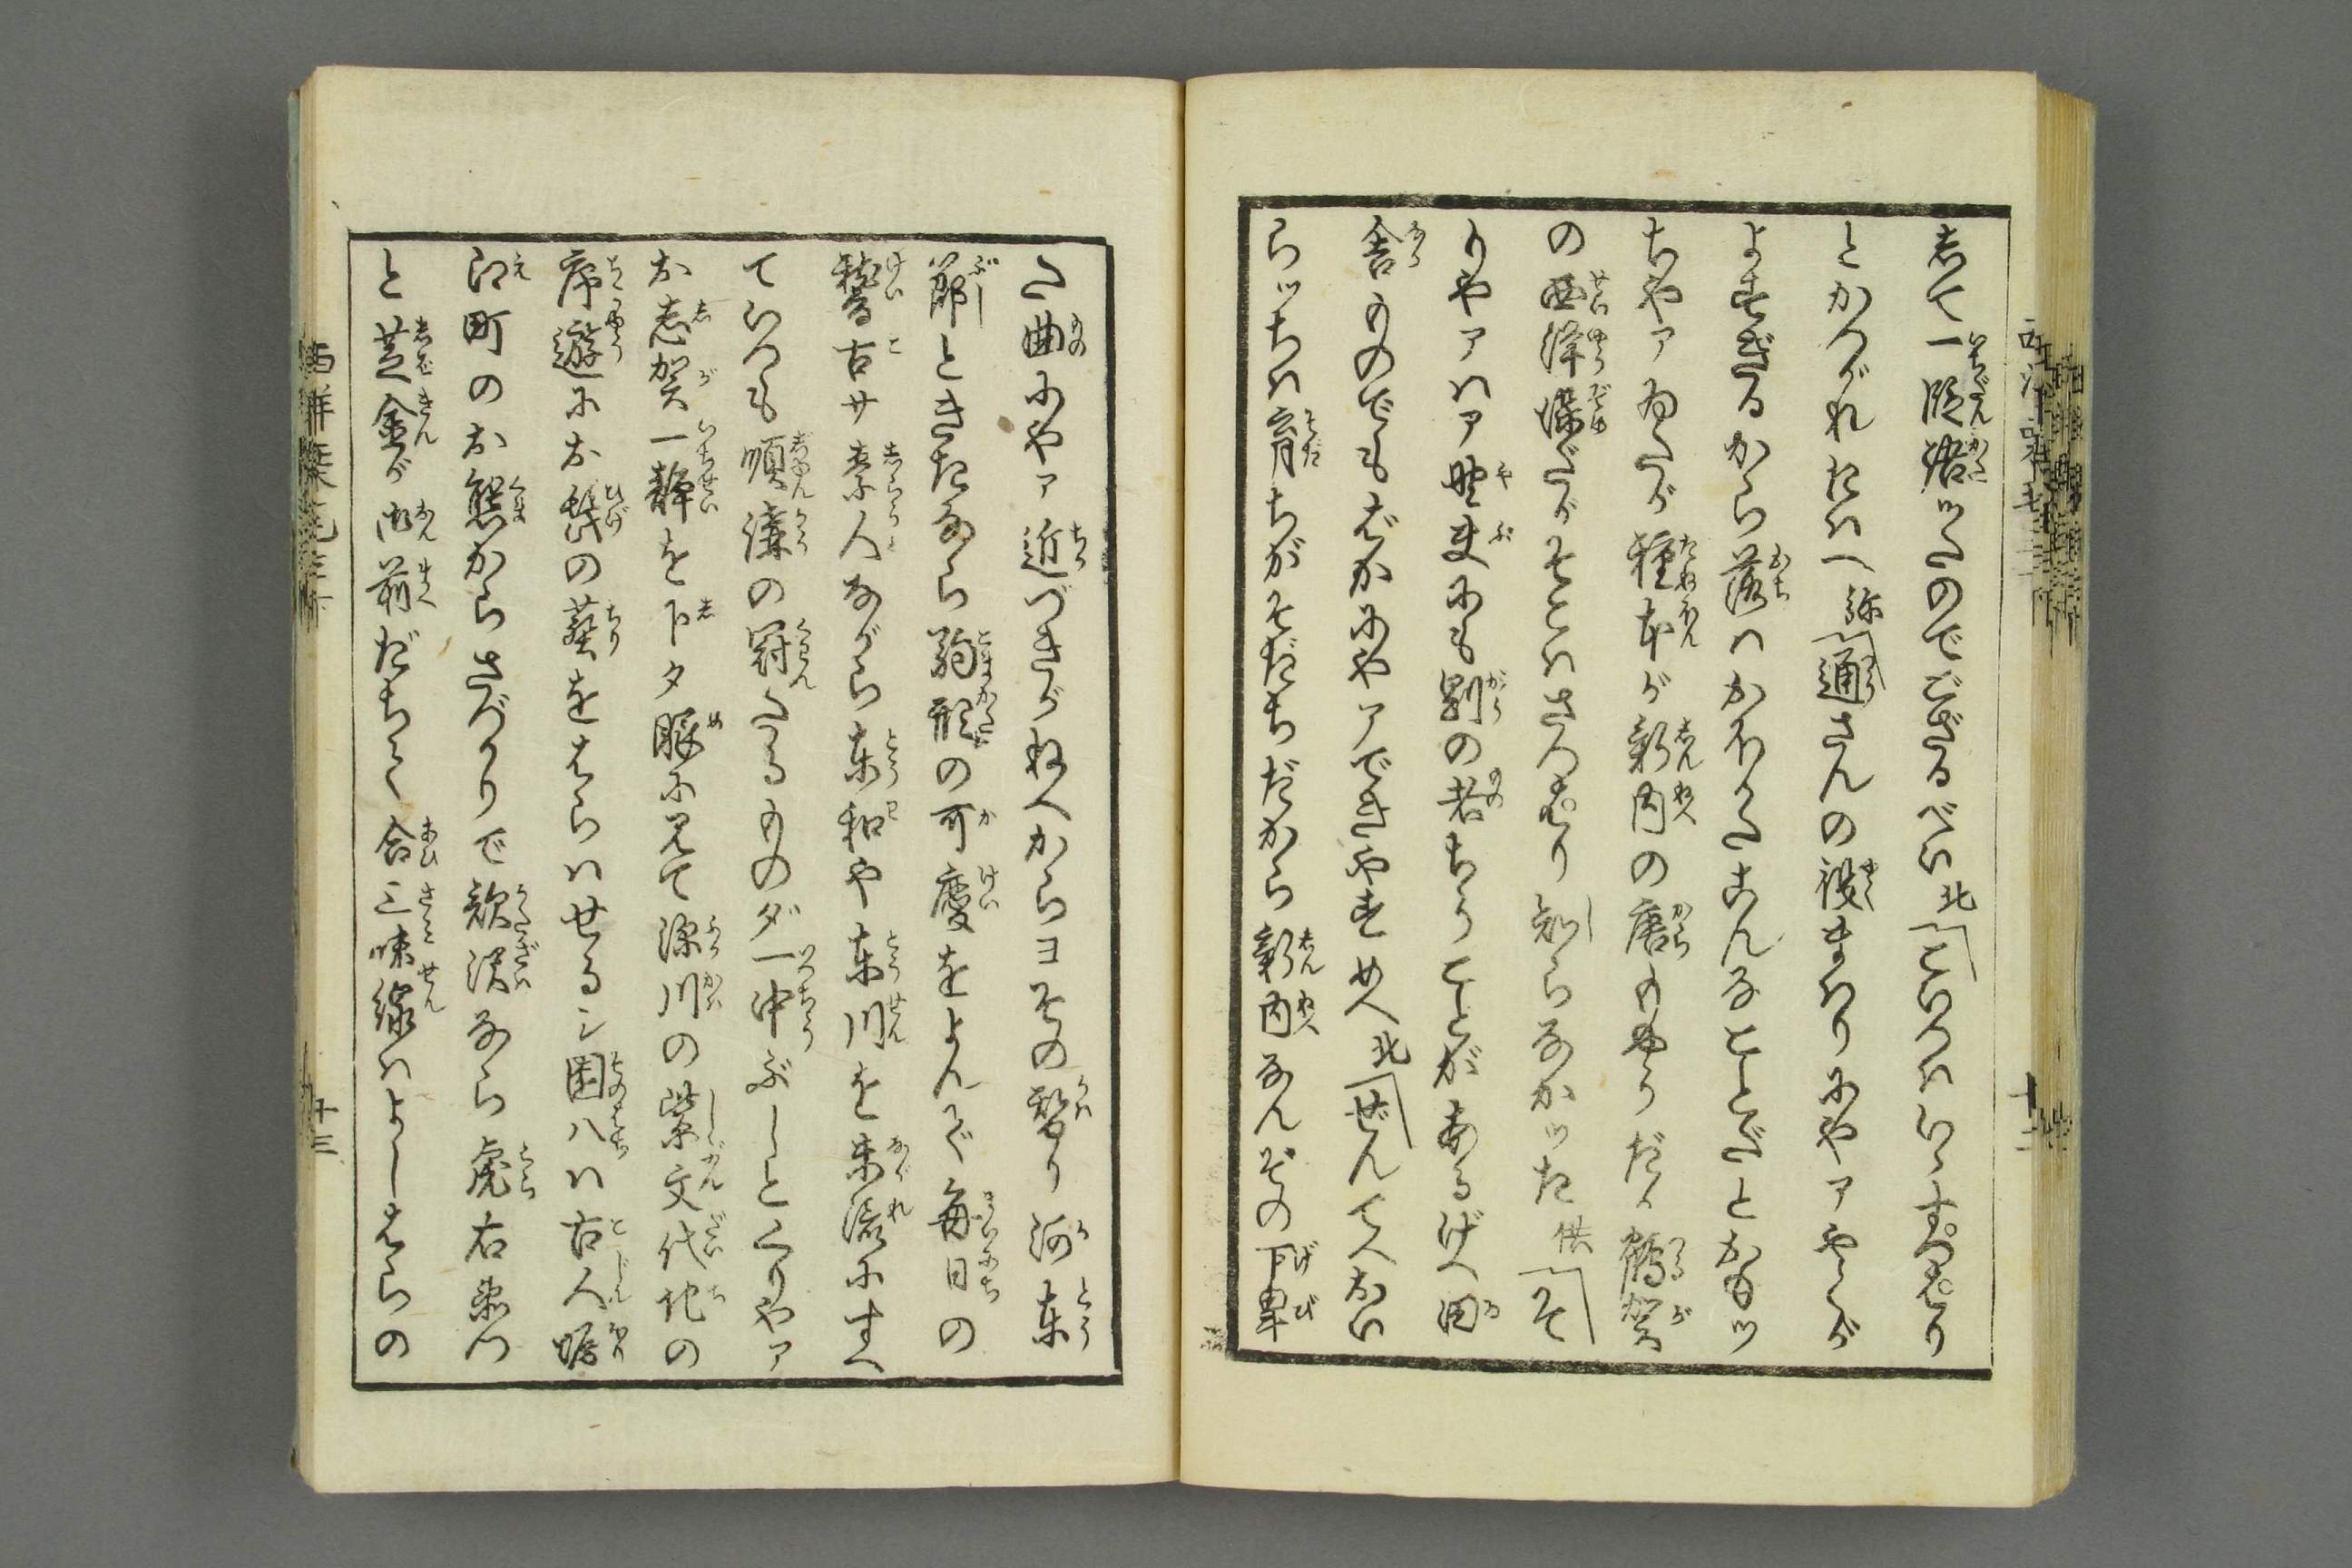 志て一段語ッたのでござるべい 北「こいつはいゝすつぱり
とかつがれたはへ 弥「通さんの役まはりにやアやくが
よすぎるから落はかねへたこんなことだとおもッ
ちやアゐたが種本が新内の唐もやうだゟ鶴賀
の西洋染だがそこはさつぱり知らなかッた 供「そ
りやアハア野史にも別の者ちうことがあるげへ田
舎ものでもばかにやアできやすめへ 北「ぜんてへおい
らッちは育ちがそだちだから新内なんぞの下卑
た曲にやア近づきがねへからヨその替り河東
節ときたなら駒形の可慶をよんで毎日の
稽古サ素人ながら東和や東川を末流にすへ
ていつも順講の冠たるものダ一中ぶしとくりやア
お志賀一静を下タ眼に見て深川の紫文代地の
序遊にお髭の塵をはらはせるシ園八は古人蜷
江町のお熊からさづかりで歌沢なら虎右衛門
と芝金が御前だちて合三味線はよしはらの
十三